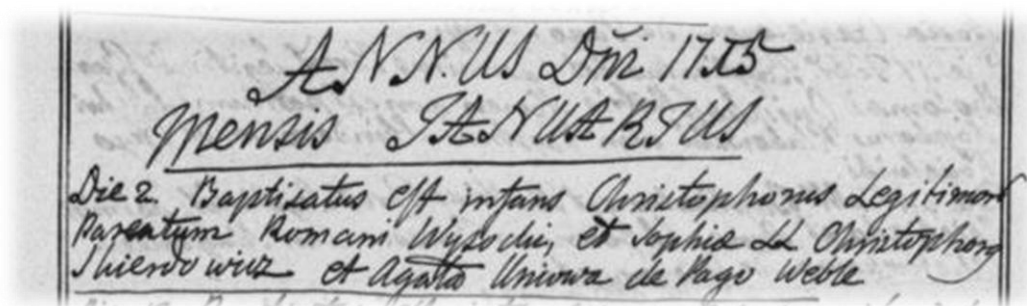 ANNUS Dñi 1715
Mensis JANUARIUS
Die 2. Baptisatus est infans Christophorus Legitimor
Parentum Romani Wysocki, et Sophiæ LL Christophorg
et Agata de Pago Weble